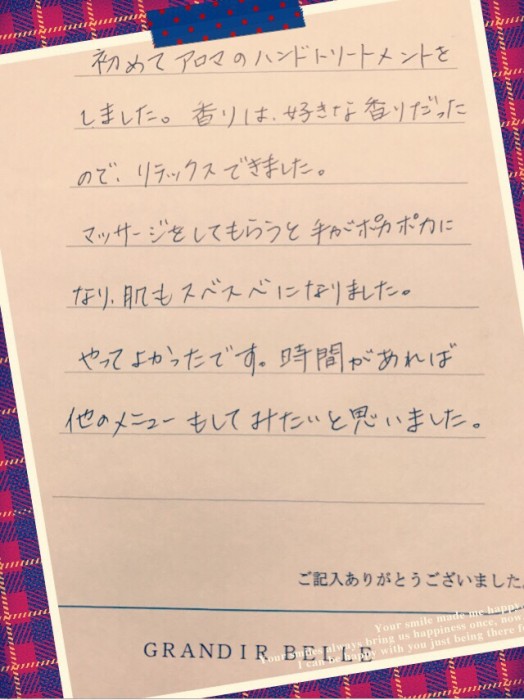 初めて アロマのハンドトリートメントを
しました。香りは、好きな香りだった
ので、リラックスできました。
マッサージをしてもらうと手がポカポカに
なり、肌もスベスベになりました。
やってよかったです。時間があれば
他のメニューもしてみたいと思いました。
ご記入ありがとうございました。
GRANDIR BELLE
Your smile made me happy
Your smiles always bring us happiness once, now
I can be happy with you just being there f